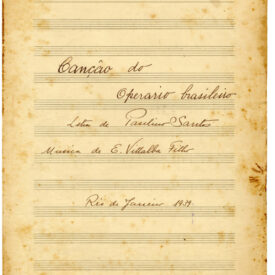 Canção do
Operario brasileiro
Letra de Paulino Santos
Musica de E. Villalba Filho
Rio de Janeiro 1939